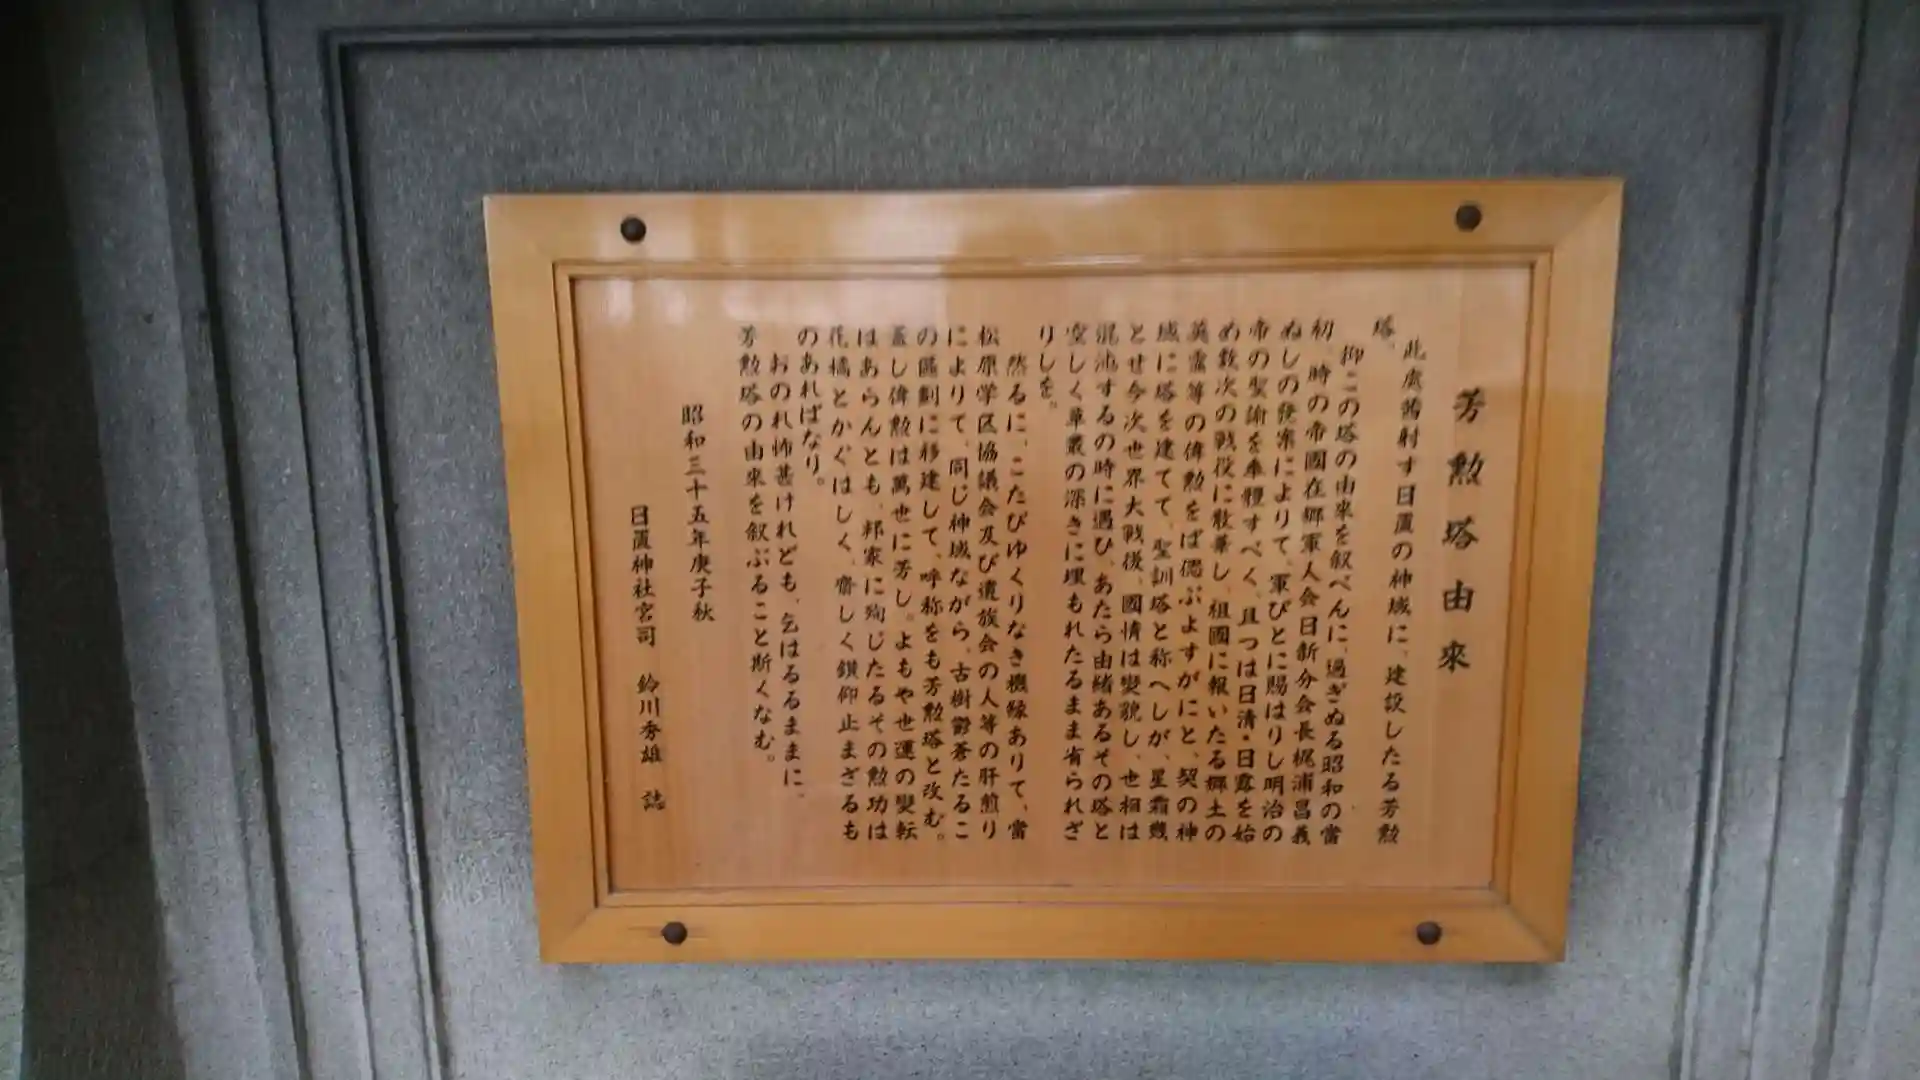 芳勲塔由來
此處茜射す日置の神域に、建設したる芳勲
塔、
抑この塔の由来を叙べんに、過ぎぬる昭和の當
初、時の帝國在郷軍人会日新分会長梶浦昌義
ぬしの発案によりて、軍びとに賜はりし明治の
帝の聖諭を奉體すべく、且つは日清・日露を始
め数次の戦役に散華し、祖國に報いたる郷土の
英霊等の偉勲をば偲ぶよすがにと、契の神
域に塔を建てて、聖訓塔と称へしが、星霜幾
とせ今次世界大戦後、國情は変貌し、世相は
混沌するの時に遇ひ、あたら由緒あるその塔と
空しく草叢の深きに埋もれたるまま省られざ
りしを。
然るに、こたびゆくりなき機縁ありて、當
松原学区協議会及び遺族会の人等の肝煎り
によりて、同じ神域ながら、古樹鬱蒼たるこ
の區劃に移建して、呼称をも芳勲塔と改む。
蓋し偉勲は萬世に芳し。よもや世運の変転
はあらんとも、邦家に殉じたるその勲功は
花橘とかぐはしく、齋しく鑚仰止まざるも
のあればなり。
おのれ怖甚けれども、乞はるるままに、
芳勲塔の由来を叙ぶること斯くなむ。
昭和三十五年庚子秋
日置神社宮司 鈴川秀雄 誌